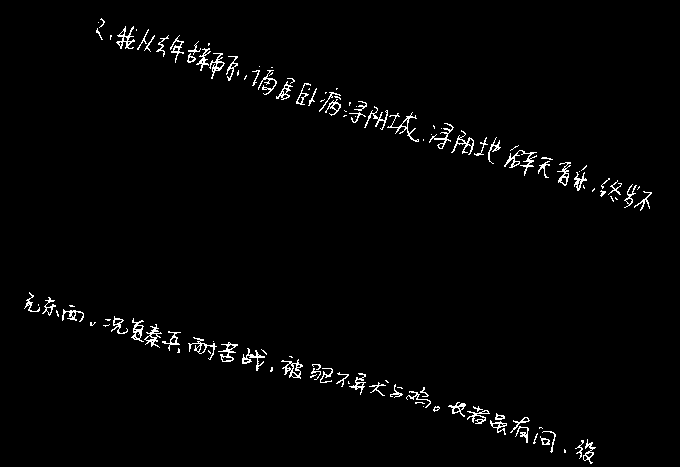 2、我从去年辞帝京，谪居卧病浔阳城．浔阳地僻无音乐，终岁不
无东西。况复秦兵耐苦战，被驱不异犬与鸡。长者虽有问，役